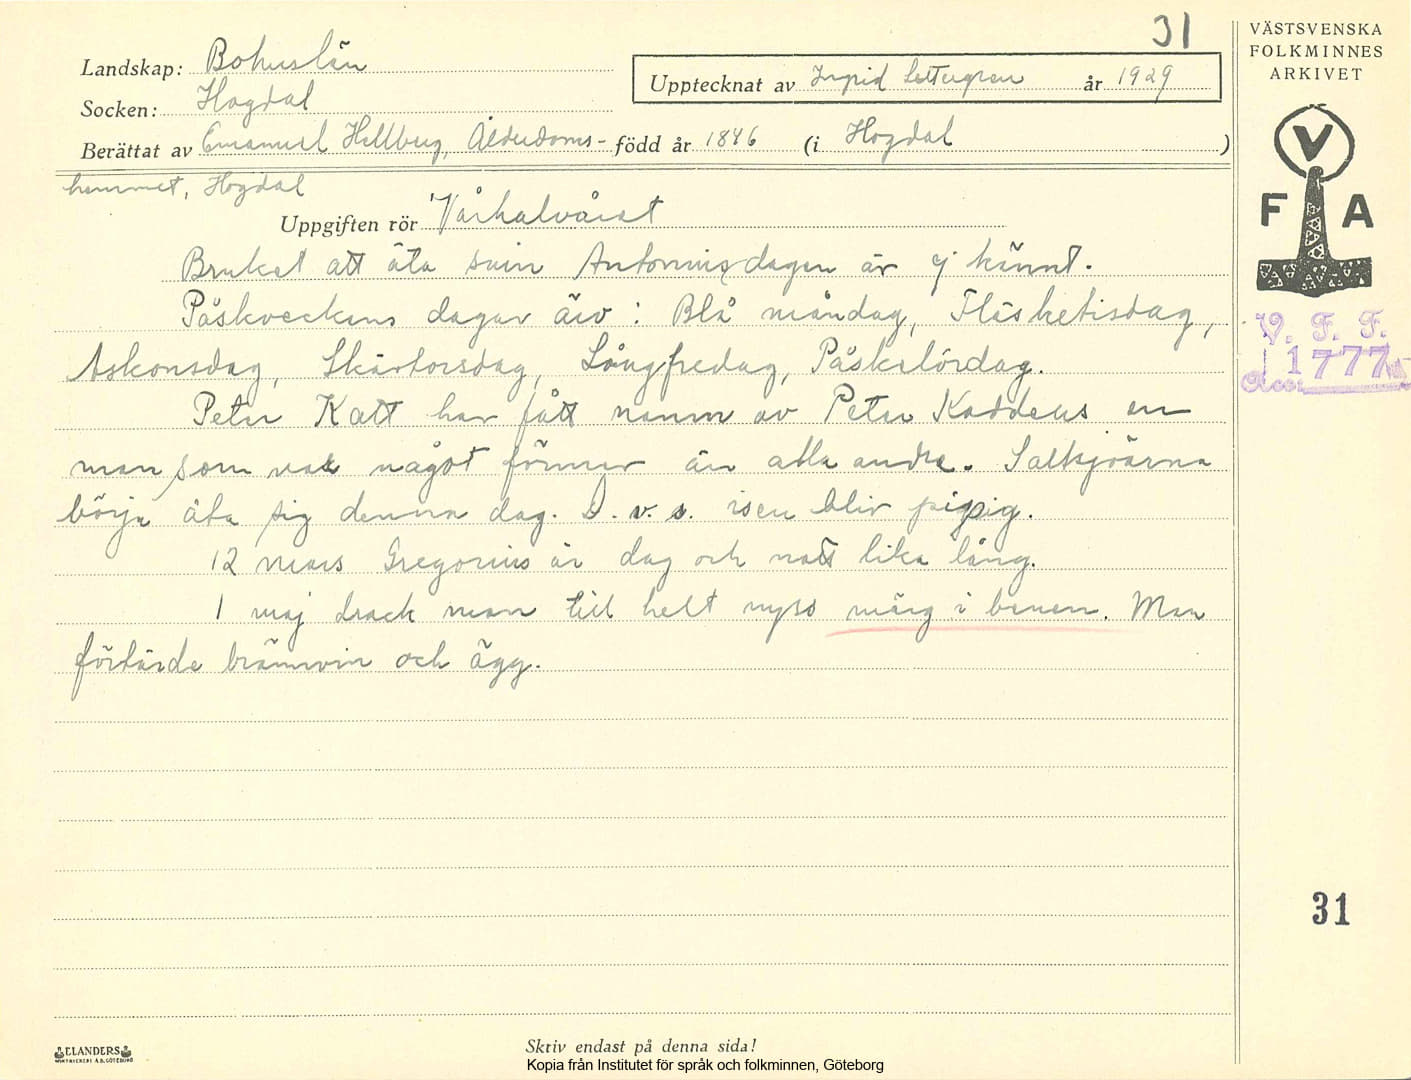 31
VÄSTSVENSKA
FOLKMINNES
ARKIVET
Landskap: Bohuslän
Upptecknat av Ingrid Settergren år 1929
Socken: Hogdal
Berättat av Emanuel Hellberg, Ålderdoms- född år 1846 (i Hogdal)
hemmet, Hogdal
Uppgiften rör Vårhalvåret
V
F A
Bruket att äta svin Antoniusdagen är ej känt.
Påskveckans dagar äro: Blå måndag, Fläsketisdag,
Askonsdag, Skärtorsdag, Långfredag, Påskelördag.
V. F. F.
1777
Acc.
Peter Katt har fått namn av Peter Kaddeus en
man som var något förmer än alla andra.
börja äta sig denna dag. D.v.s. isen blir pipig.
12 mars Gregorius är dag och natt lika lång.
1 maj drack man till helt nyss märg i benen. Man
förtärde brännvin och ägg.
31
ELANDERS
BOKTRYCKERI A.B. GÖTEBORG
Skriv endast på denna sida!
Kopia från Institutet för språk och folkminnen, Göteborg